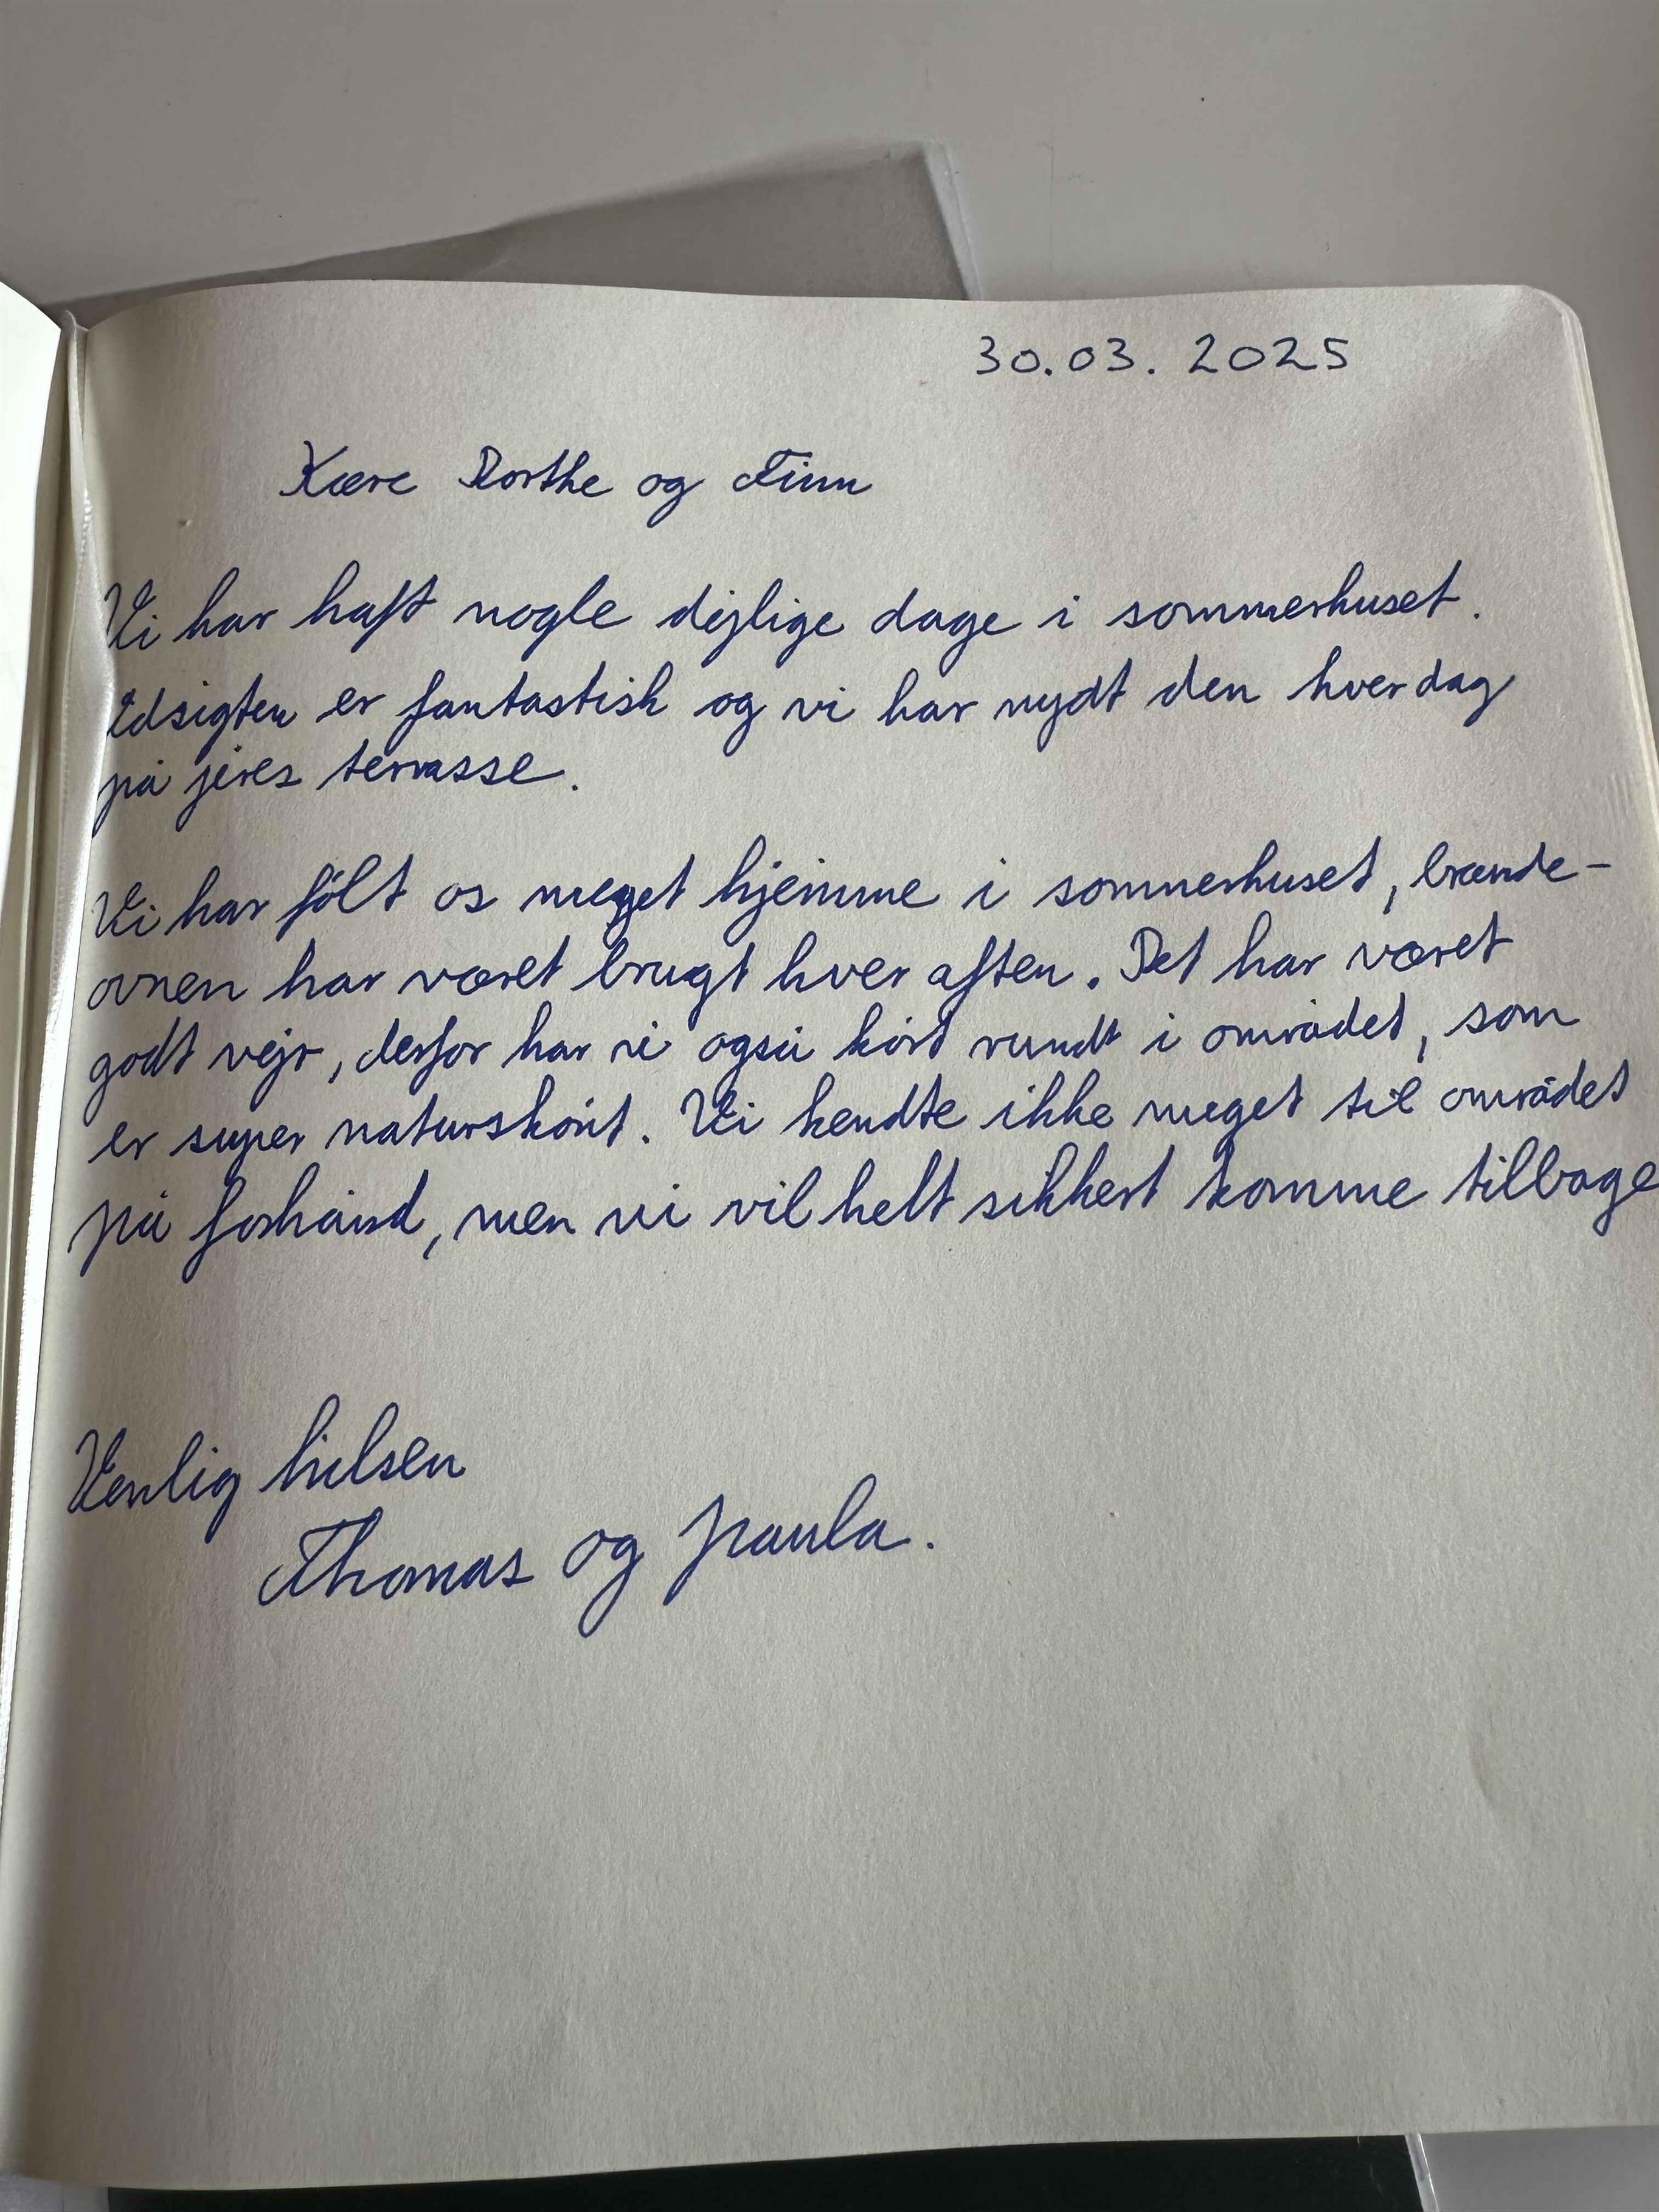 30.03.2025
Kære Dorthe og Finn
Vi har haft nogle dejlige dage i sommerhuset.
Udsigten er fantastisk og vi har nydt den hver dag
på jeres terrasse.
Vi har følt os meget hjemme i sommerhuset, brænde-
ovnen har været brugt hver aften. Det har været
godt vejr, derfor har vi også kørt rundt i området, som
er super naturskønt. Vi kendte ikke meget til området
på forhånd, men vi vil helt sikkert komme tilbage
Venlig hilsen
Thomas og Paula.